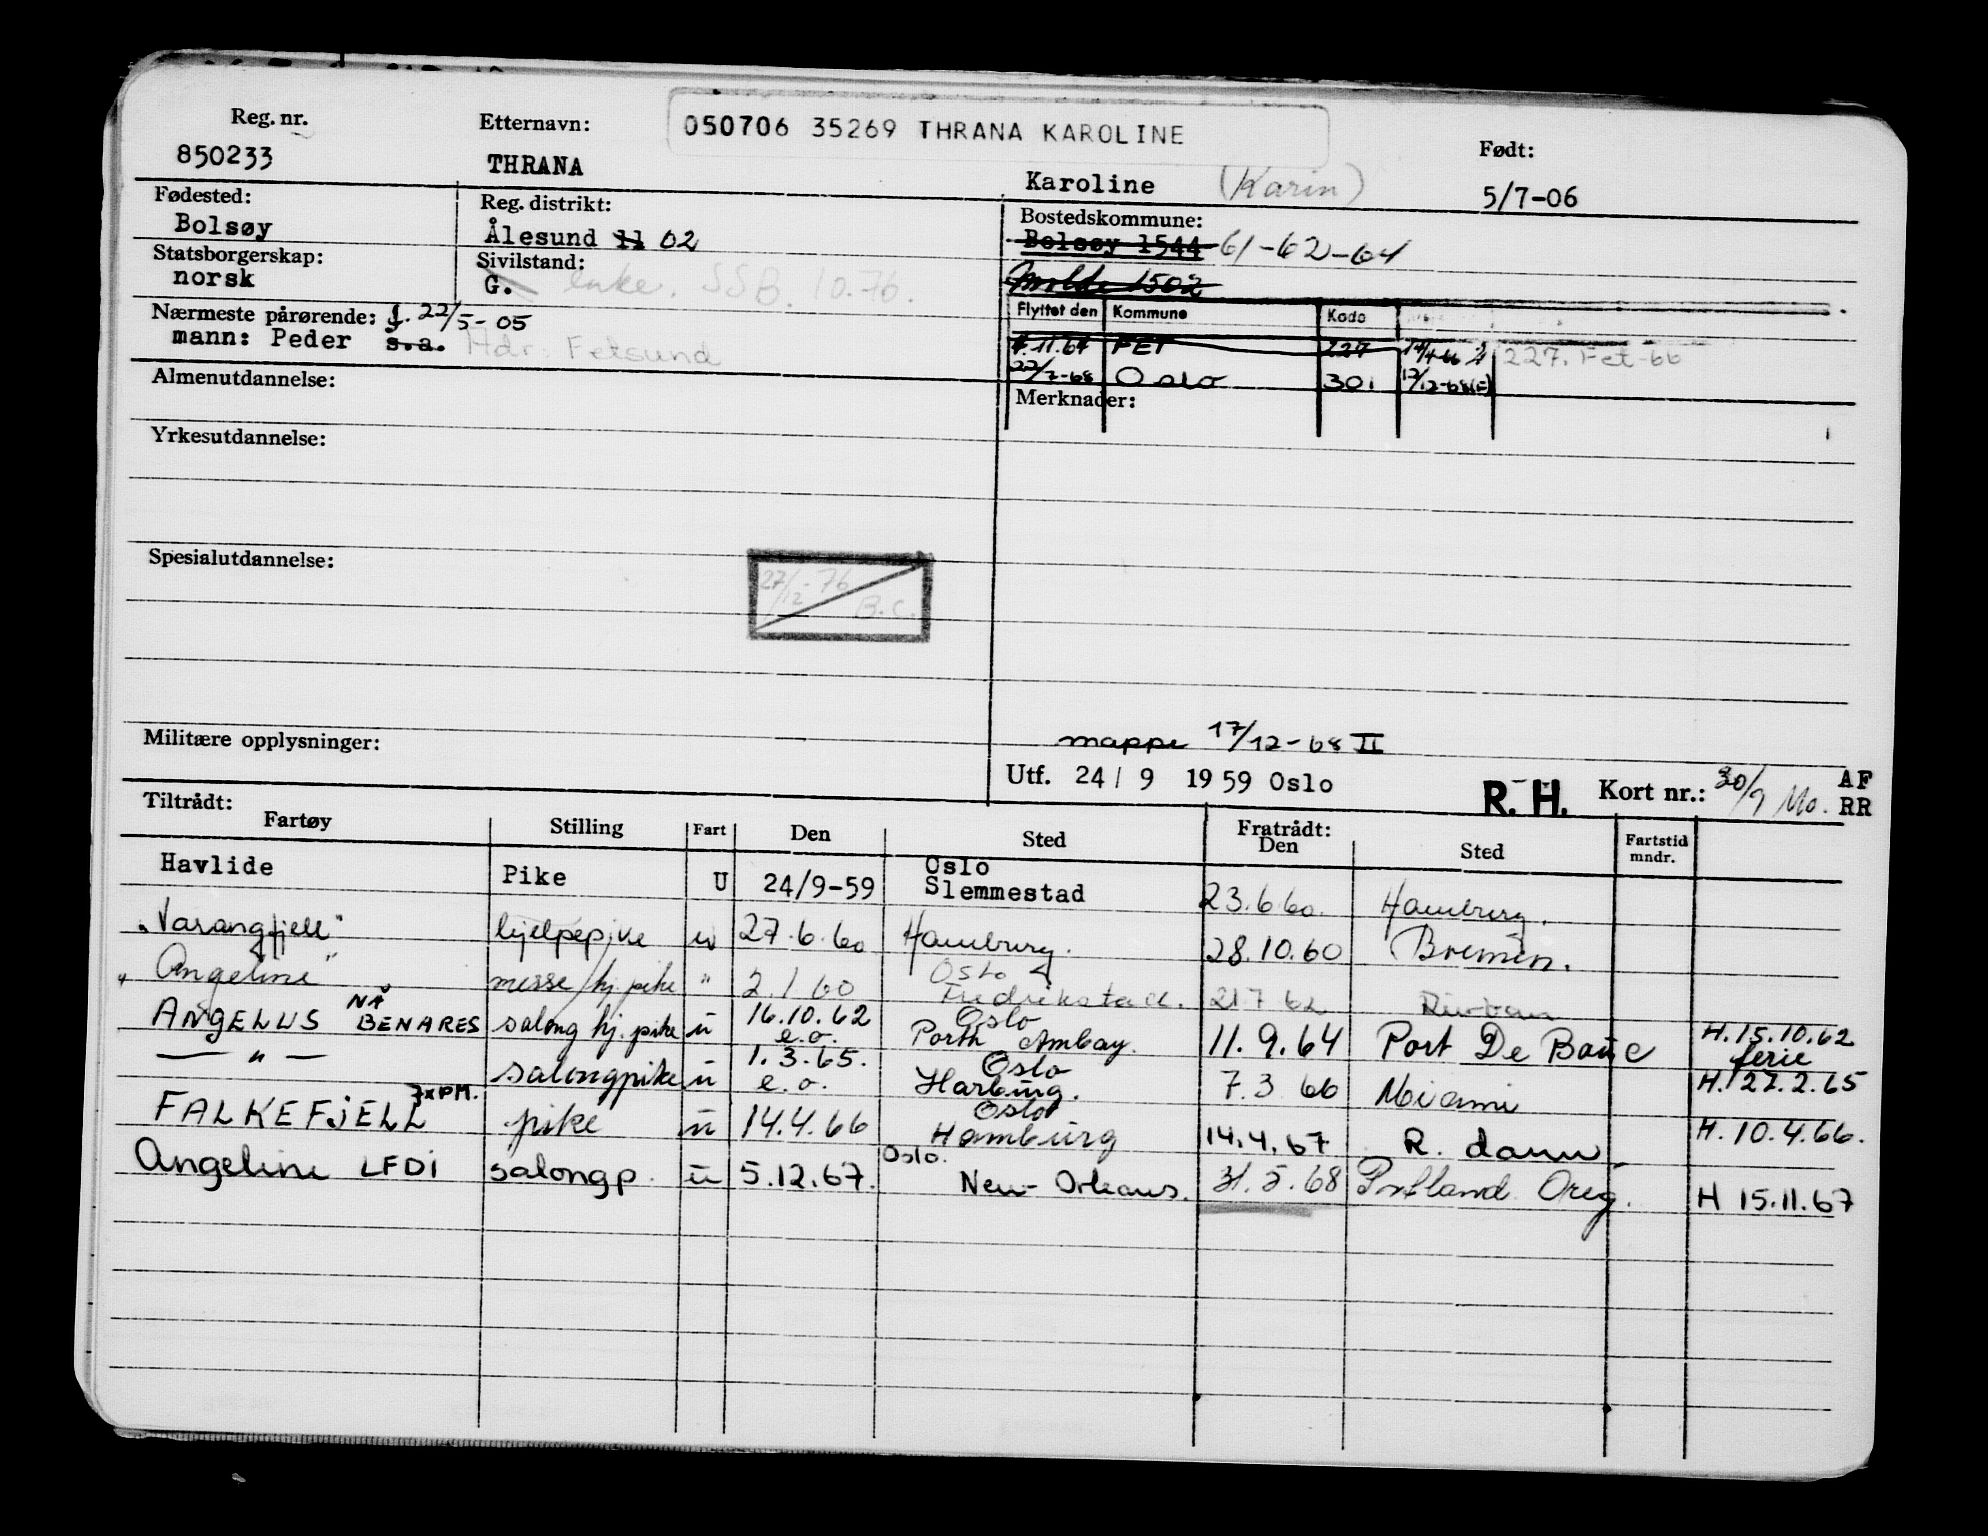 Reg. nr. Etternavn: 050706 35269 THRANA KAROLINE Født:
850233 THRANA Karoline (Karin) 5/7-06
Fødested: Reg. distrikt: Bostedskommune:
Bolsøy Ålesund 11 02 Bolsøy 1544 61-62-64
Statsborgerskap: Sivilstand: Molde 1502
norsk G. enke. SSB. 10.76.
Nærmeste pårørende: f. 22/5-05 Flyttet den Kommune Kode
mann: Peder s.a. Adr: Fetsund 1.11.64 FET 227 227. Fet-66
22/7-68 Oslo 301 12/12-68
Almenutdannelse: Merknader:
Yrkesutdannelse:
Spesialutdannelse:
27/12-76 B.C.
Militære opplysninger: mappe 17/12-68 II
Utf. 24/9 1959 Oslo R. H. Kort nr.: 30/9 Mo. AF RR
Tiltrådt: Fratrådt:
Fartøy Stilling Fart Den Sted Den Sted Fartstid mndr.
Havlide Pike U 24/9-59 Oslo Slemmestad 23.6.60. Hamburg.
"Varangfjell" hjelpepike u 27.6.60 Hamburg. 28.10.60 Bremen.
"Angeline" messe/hj. pike " 2.1.60 Oslo Fredrikstad. 21.7.62 Durban
ANGELUS NÅ BENARES salong hj. pike u 16.10.62 e.o. Oslo Porth Ambay. 11.9.64 Port De Bouc H. 15.10.62 ferie
— " — salongpike u 1.3.65. e.o. Oslo Harburg. 7.3 66 Miami H. 27.2.65
FALKEFJELL 7xPM. pike u 14.4.66 Oslo Hamburg 14.4.67 R. dam H. 10.4.66.
Angeline LFDI salongp. u 5.12.67. Oslo. New-Orleans. 31.5.68 Portland Oreg. H 15.11.67